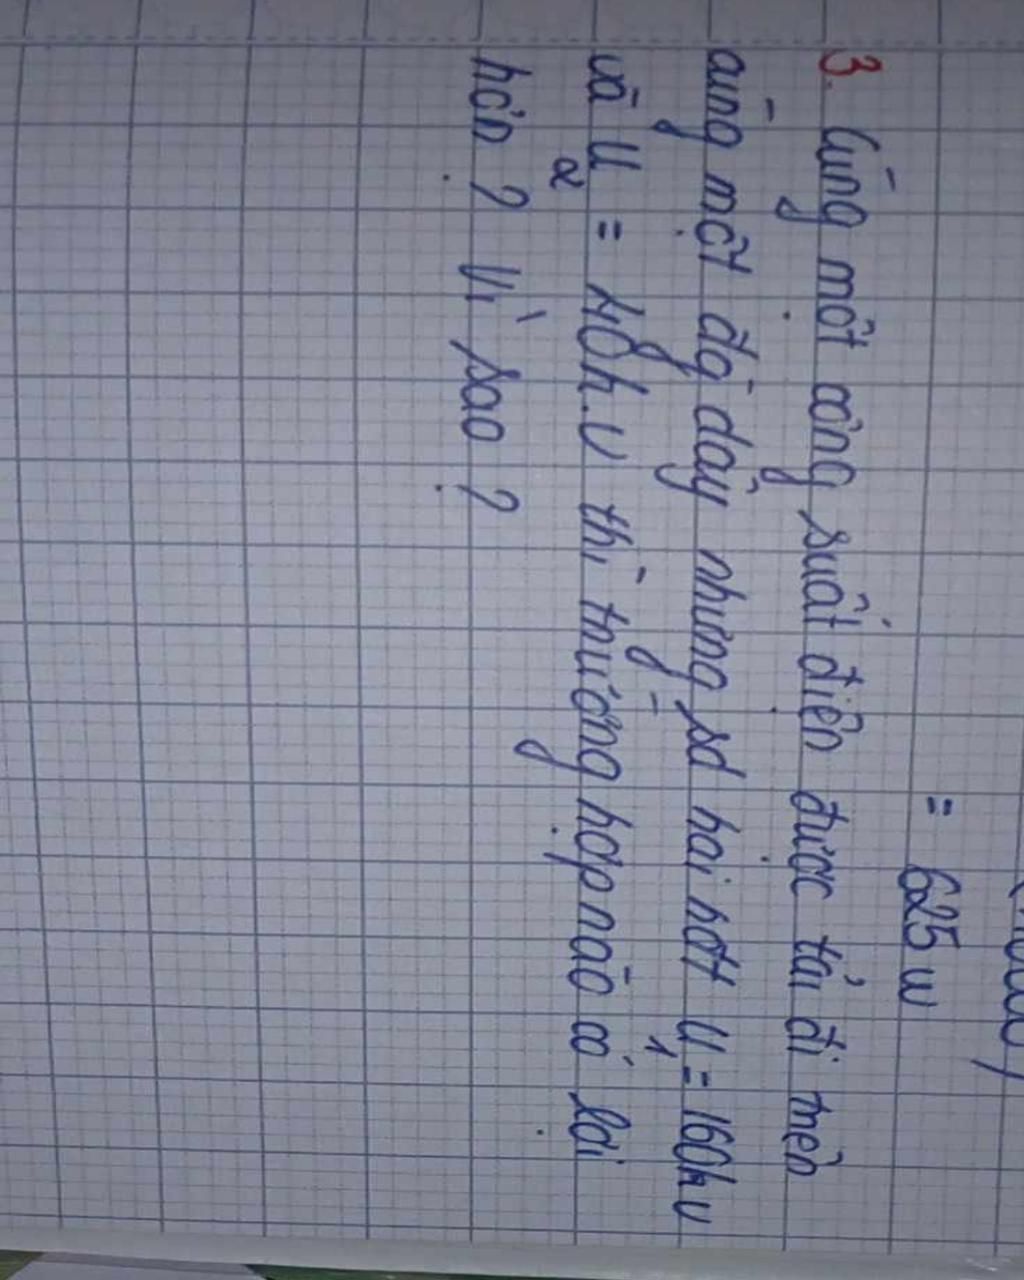 = 625 W
3. Cùng một công suất điện được tải đi trên
cùng một đg dây nhưng sd hai hđt U1 = 160kV
và U2 = 40k.V thì trường hợp nào có lợi
hơn ? Vì sao ?